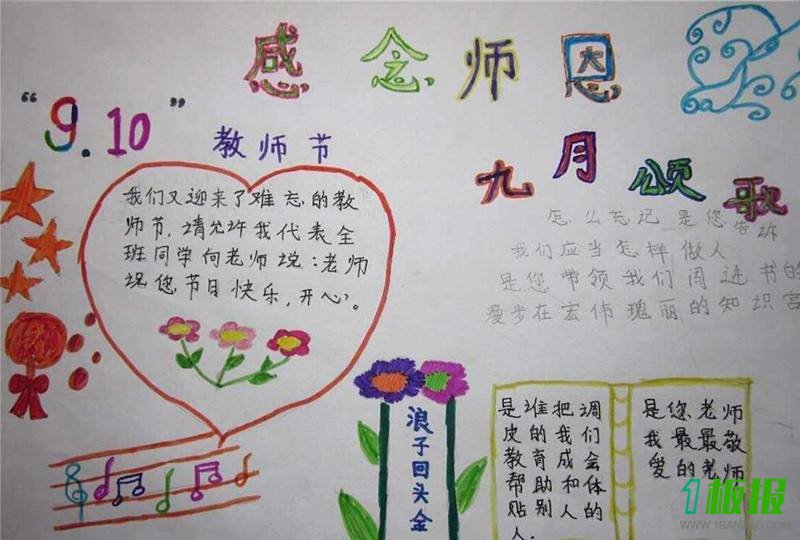 感念师恩
"9.10"
教师节
九月颂歌
我们又迎来了难忘的教
师节,请允许我代表全
班同学向老师说:老师
祝您节日快乐,开心。
怎么忘记是您告诉
我们应当怎样做人
是您带领我们闯进书的
漫步在宏伟瑰丽的知识宫
浪子回头金
是谁把调
皮的我们
教育成会
帮助和体
贴别人的
人。
是您老师
我最最敬
爱的老师
1板报
WWW.1BANBAO.COM